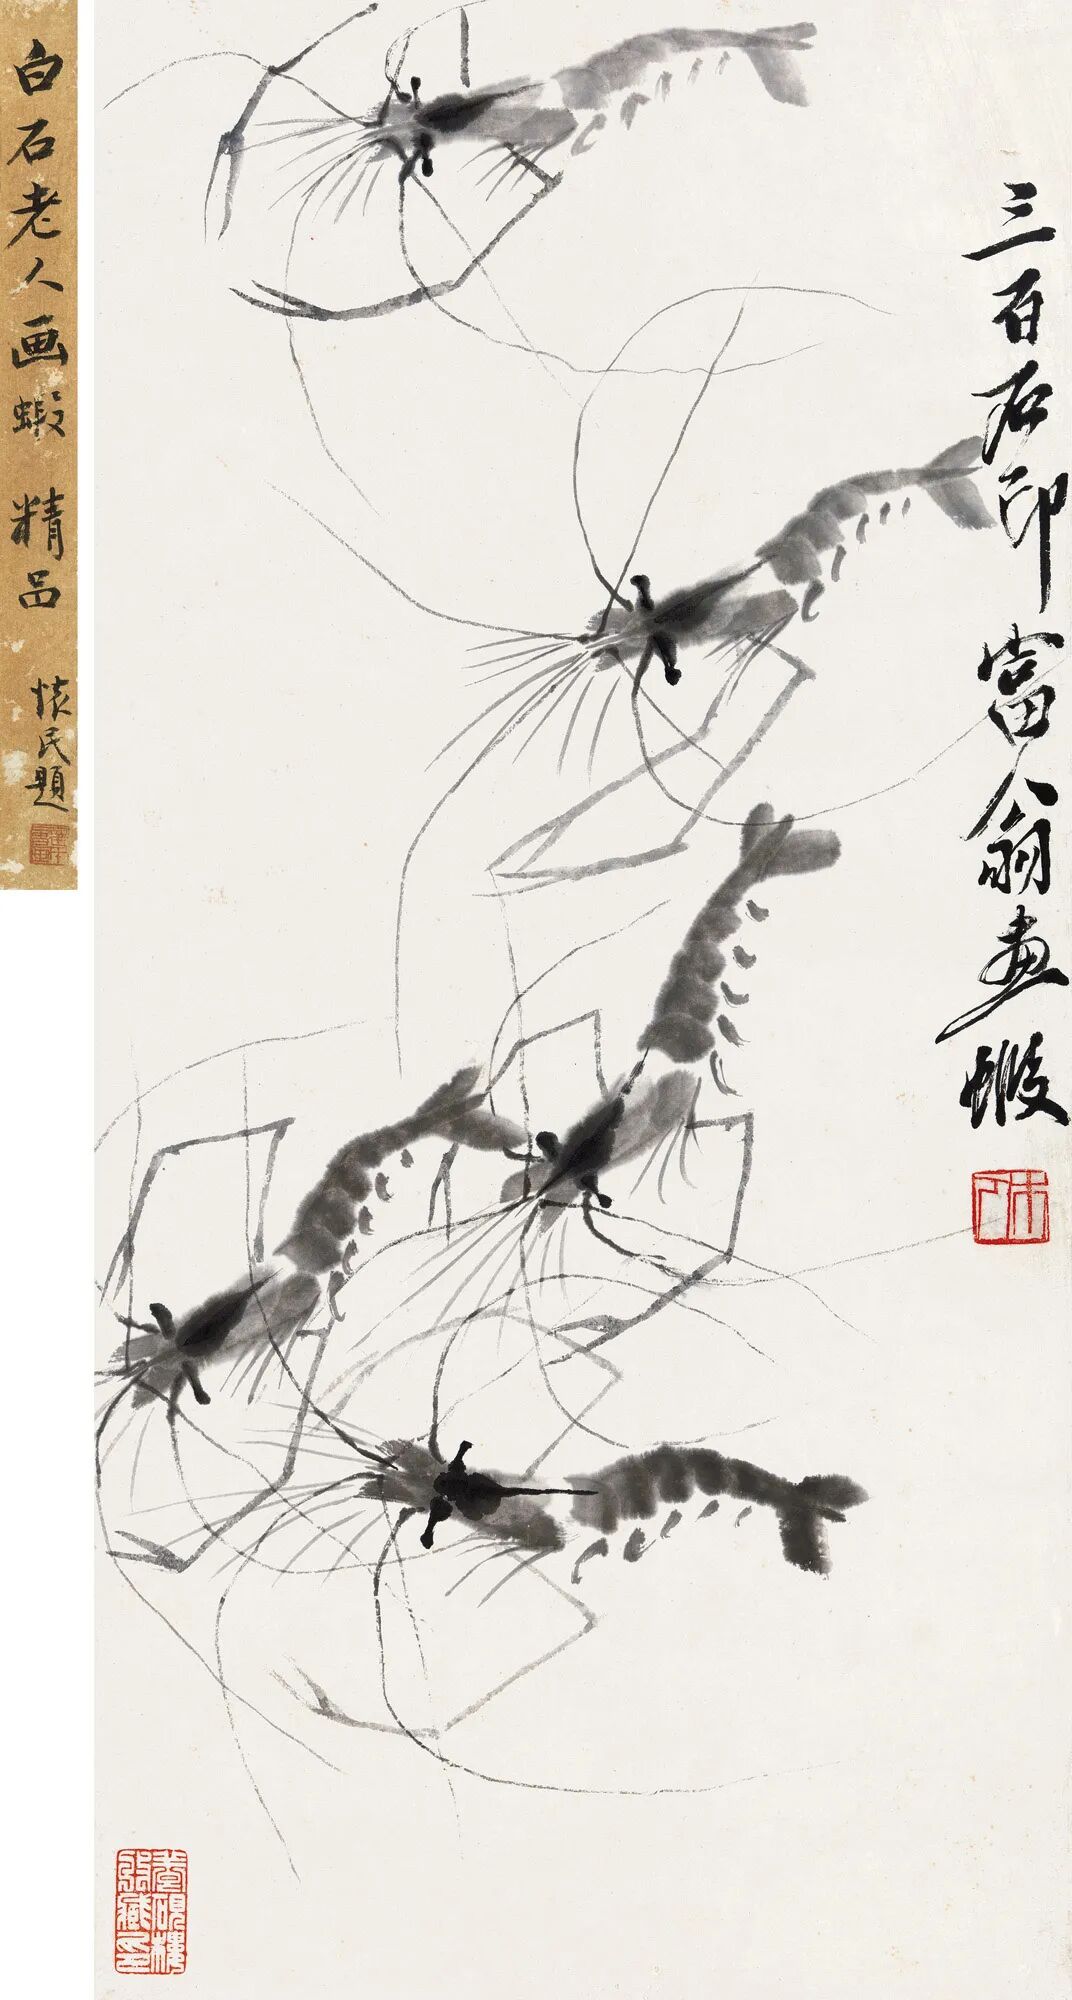 白石老人画蝦精品
懷民題
三百石印富翁畫蝦
木人